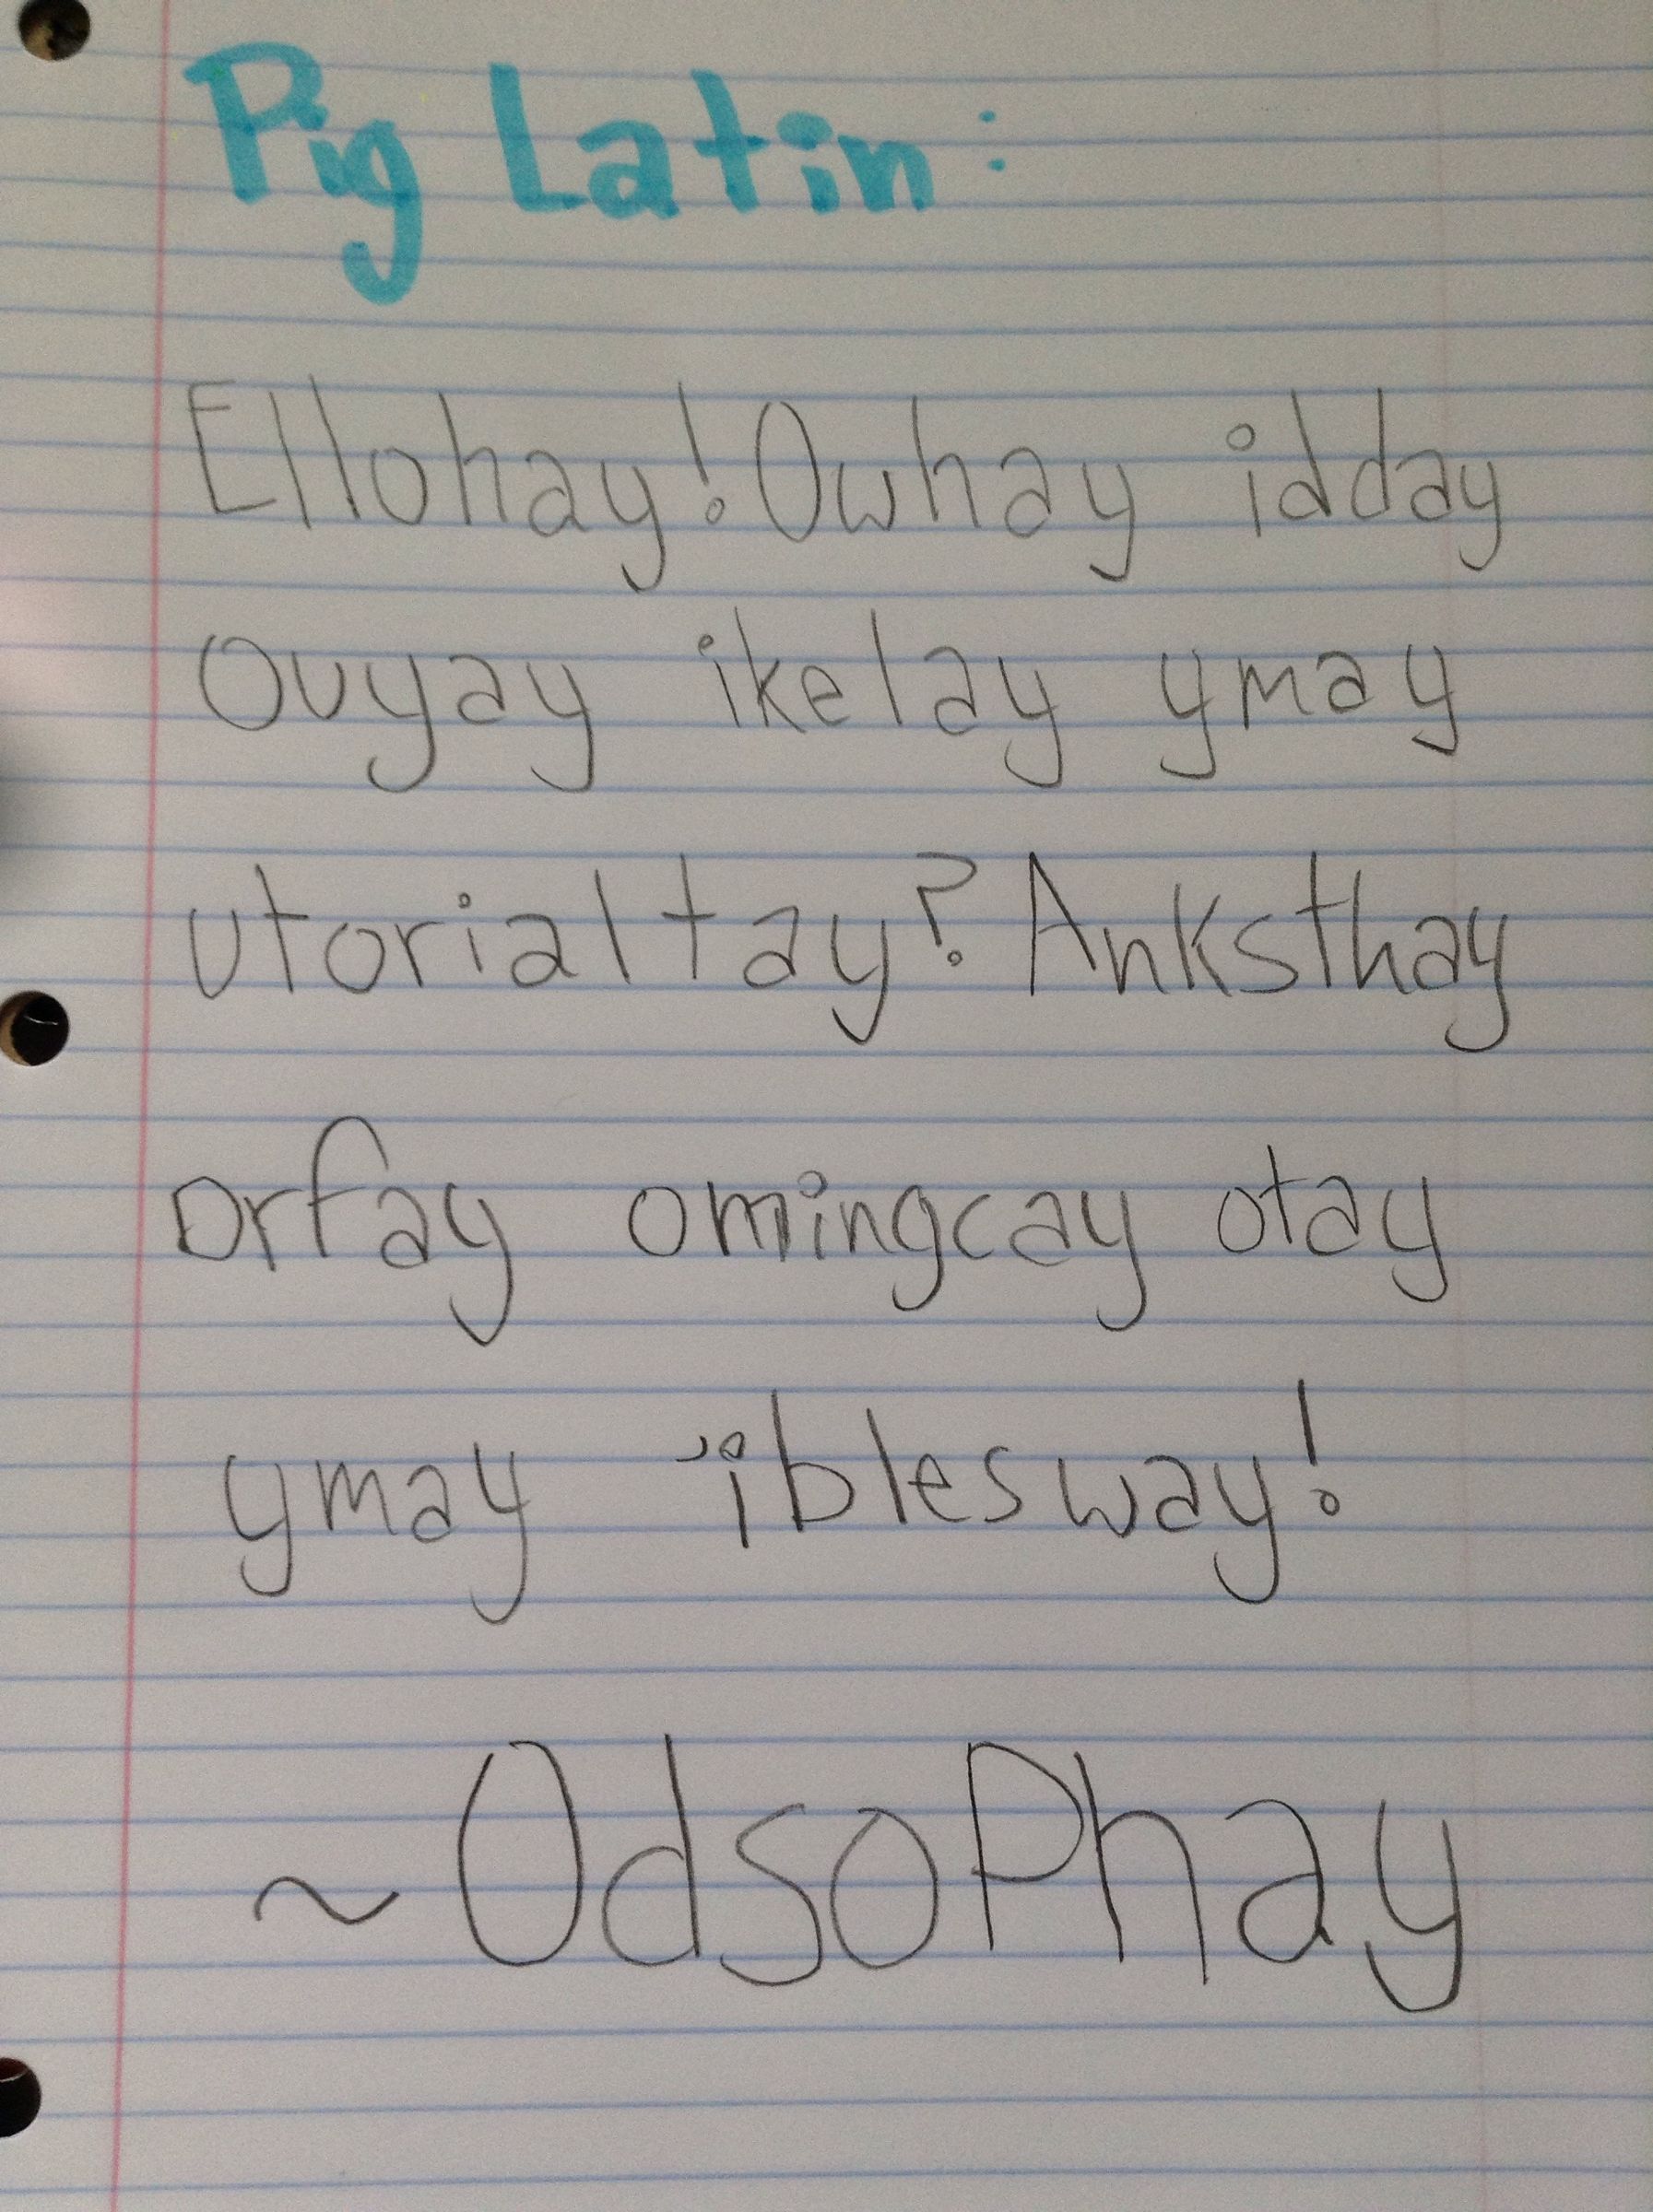 Pig Latin:
Ellohay! Owhay idday
Ouyay ikelay ymay
utorialtay? Anksthay
orfay omingcay otay
ymay 'iblesway!
~OdsoPhay